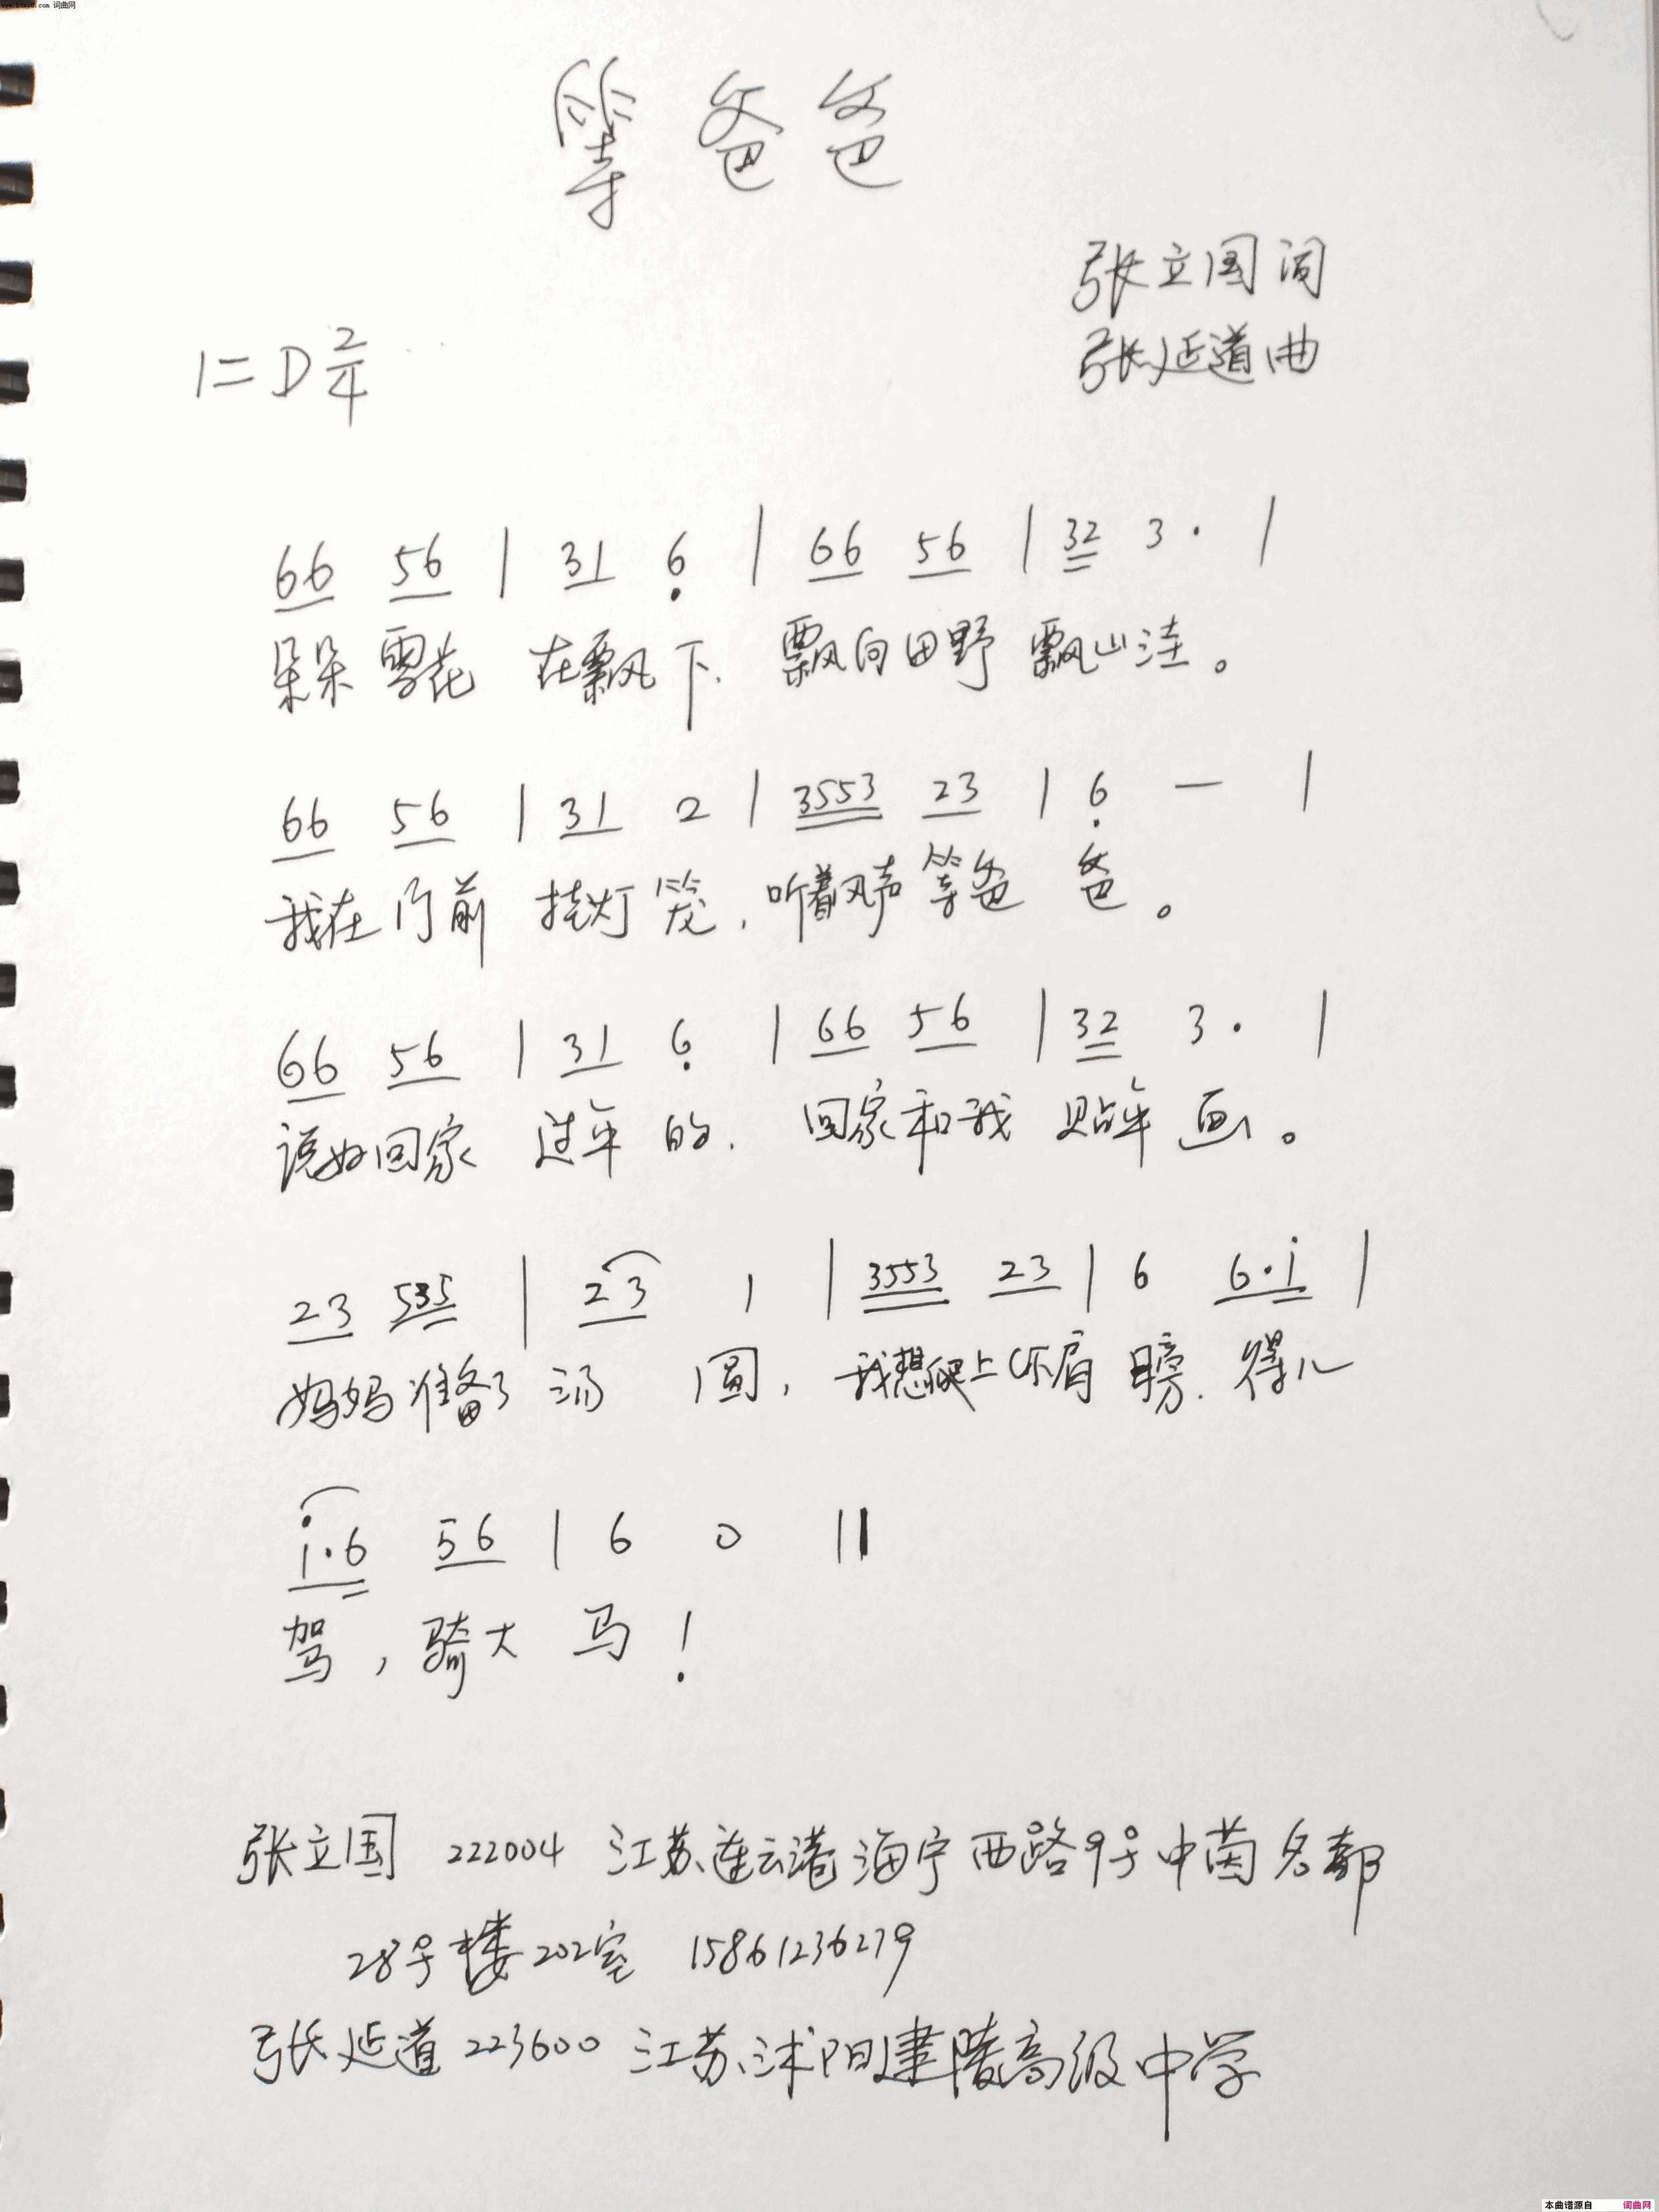 www.ktvc8.com 词曲网
等爸爸
张立国词
张延道曲
1=D 2/4
66 56 | 31 6̣ | 66 56 | 32 3· |
朵朵雪花 在飘下. 飘向田野 飘山洼。
66 56 | 31 2 | 3553 23 | 6̣ — |
我在门前 挂灯笼, 听着风声 等爸 爸。
66 56 | 31 6̣ | 66 56 | 32 3· |
说好回家 过年 的. 回家和我 贴年 画。
23 535 | 23 1 | 3553 23 | 6 6·i |
妈妈准备了 汤 圆, 我想爬上你肩 膀. 得儿
i·6 56 | 6 0 ||
驾, 骑大 马!
张立国 222004 江苏连云港海宁西路9号中茵名都
28号楼202室 15861236279
张延道 223600 江苏沭阳建陵高级中学
本曲谱源自 词曲网